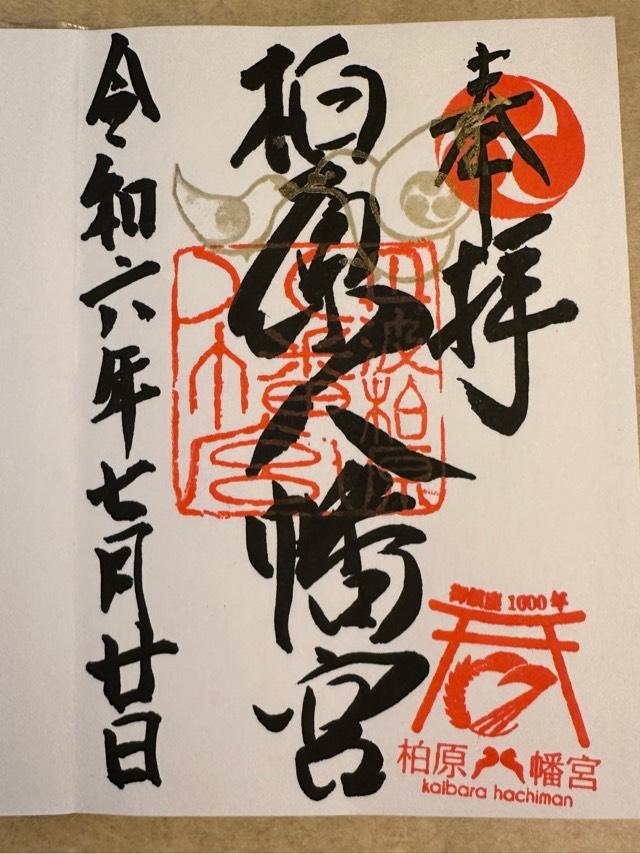 奉拝
柏原八幡宮
令和六年七月廿日
丹波柏原
八幡宮
御鎮座 1000年
柏原八幡宮
kaibara hachiman